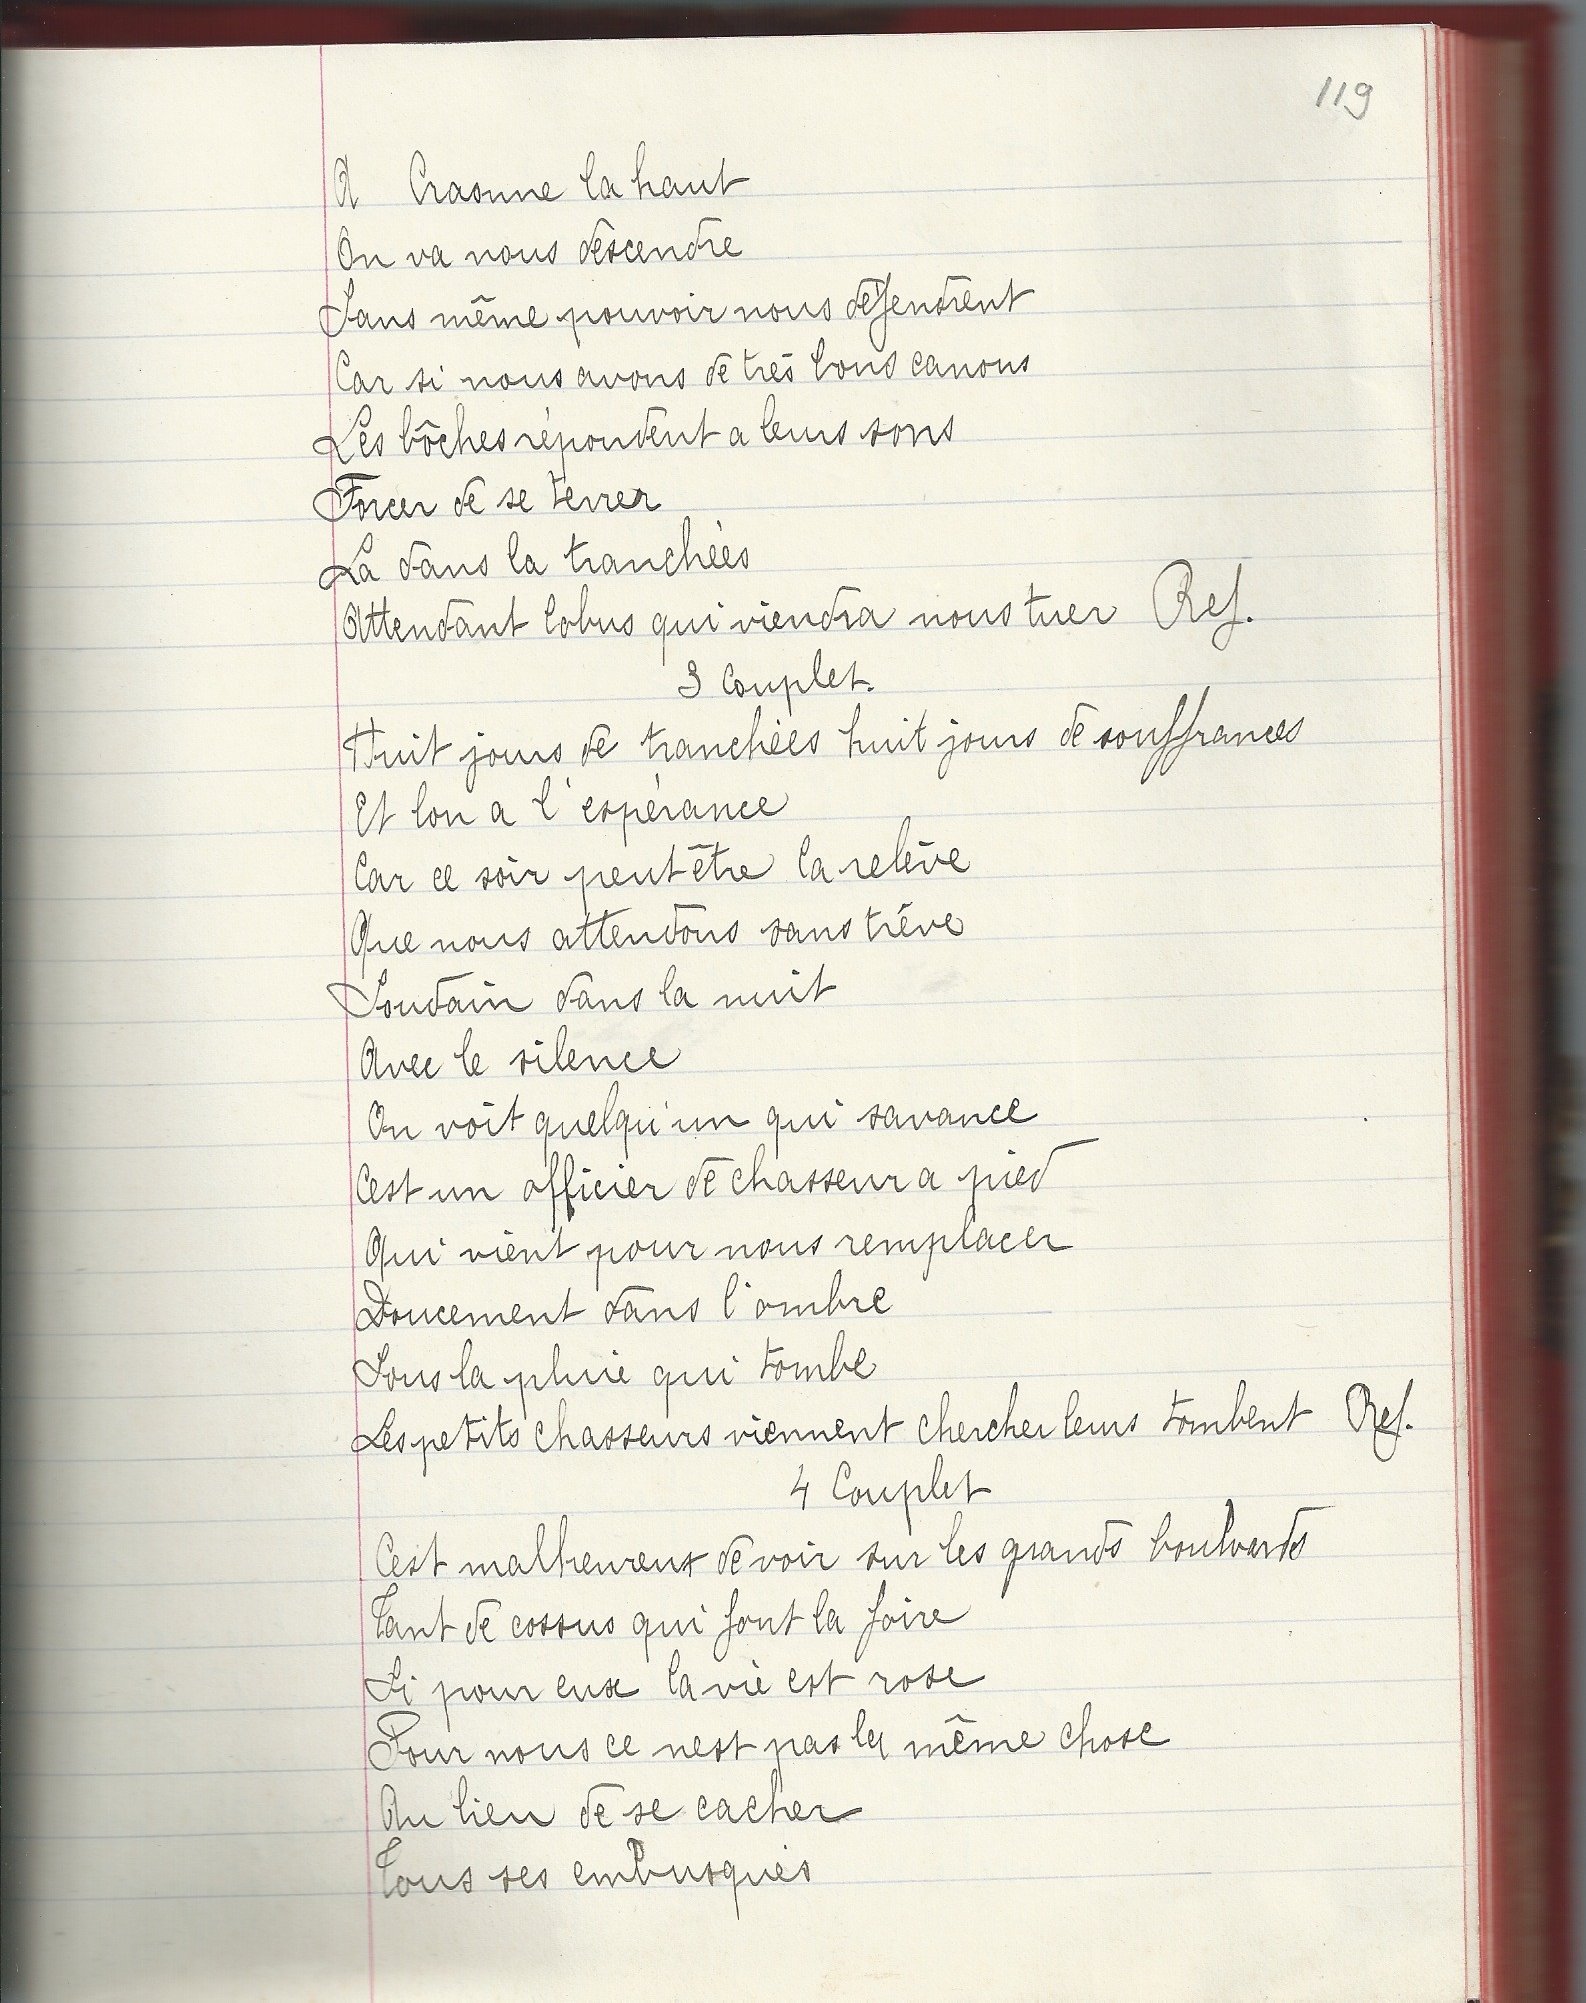 119
A Craonne la haut
On va nous descendre
Sans même pouvoir nous défendrent
Car si nous avons de très bons canons
Les bôches répondent a leurs sons
Forcer de se terrer
La dans la tranchées
Attendant lobus qui viendra nous tuer Ref.
3 Couplet.
Huit jours de tranchées huit jours de souffrances
Et lon a l'espérance
Car ce soir peut être la relève
Que nous attendons sans trêve
Soudain dans la nuit
Avec le silence
On voit quelqu'un qui savance
Cest un officier de chasseur a pied
Qui vient pour nous remplacer
Doucement dans l'ombre
Sous la pluie qui tombe
Les petits chasseurs viennent chercher leurs tombent Ref.
4 Couplet
Cest malheureux de voir sur les grands boulvards
Tant de cossus qui font la foire
Si pour eux la vie est rose
Pour nous ce nest pas la même chose
Au lieu de se cacher
Tous ses embusqués